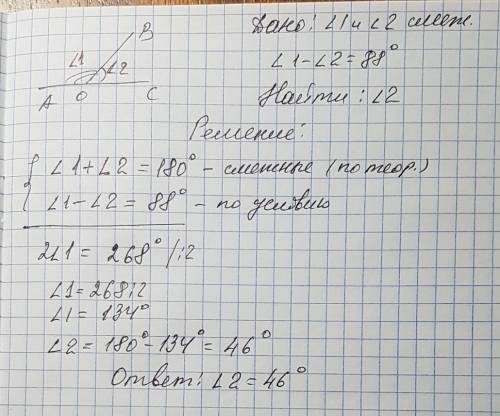 Дано: ∠1 и ∠2 смеж.
∠1-∠2=88°
Найти: ∠2
B
∠1
∠2
A O C
Решение:
{ ∠1+∠2=180° - смежные (по теор.)
∠1-∠2=88° - по условию
2∠1=268° /:2
∠1=268:2
∠1=134°
∠2=180°-134°=46°
Ответ: ∠2=46°